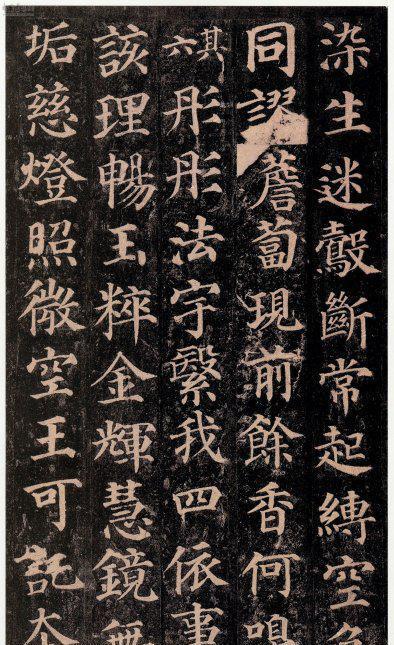 染生迷鷇斷常起縛空色
同謬薝蔔現前餘香何嗅
其六彤彤法宇繄我四依事
該理暢玉粹金輝慧鏡無
垢慈燈照微空王可託